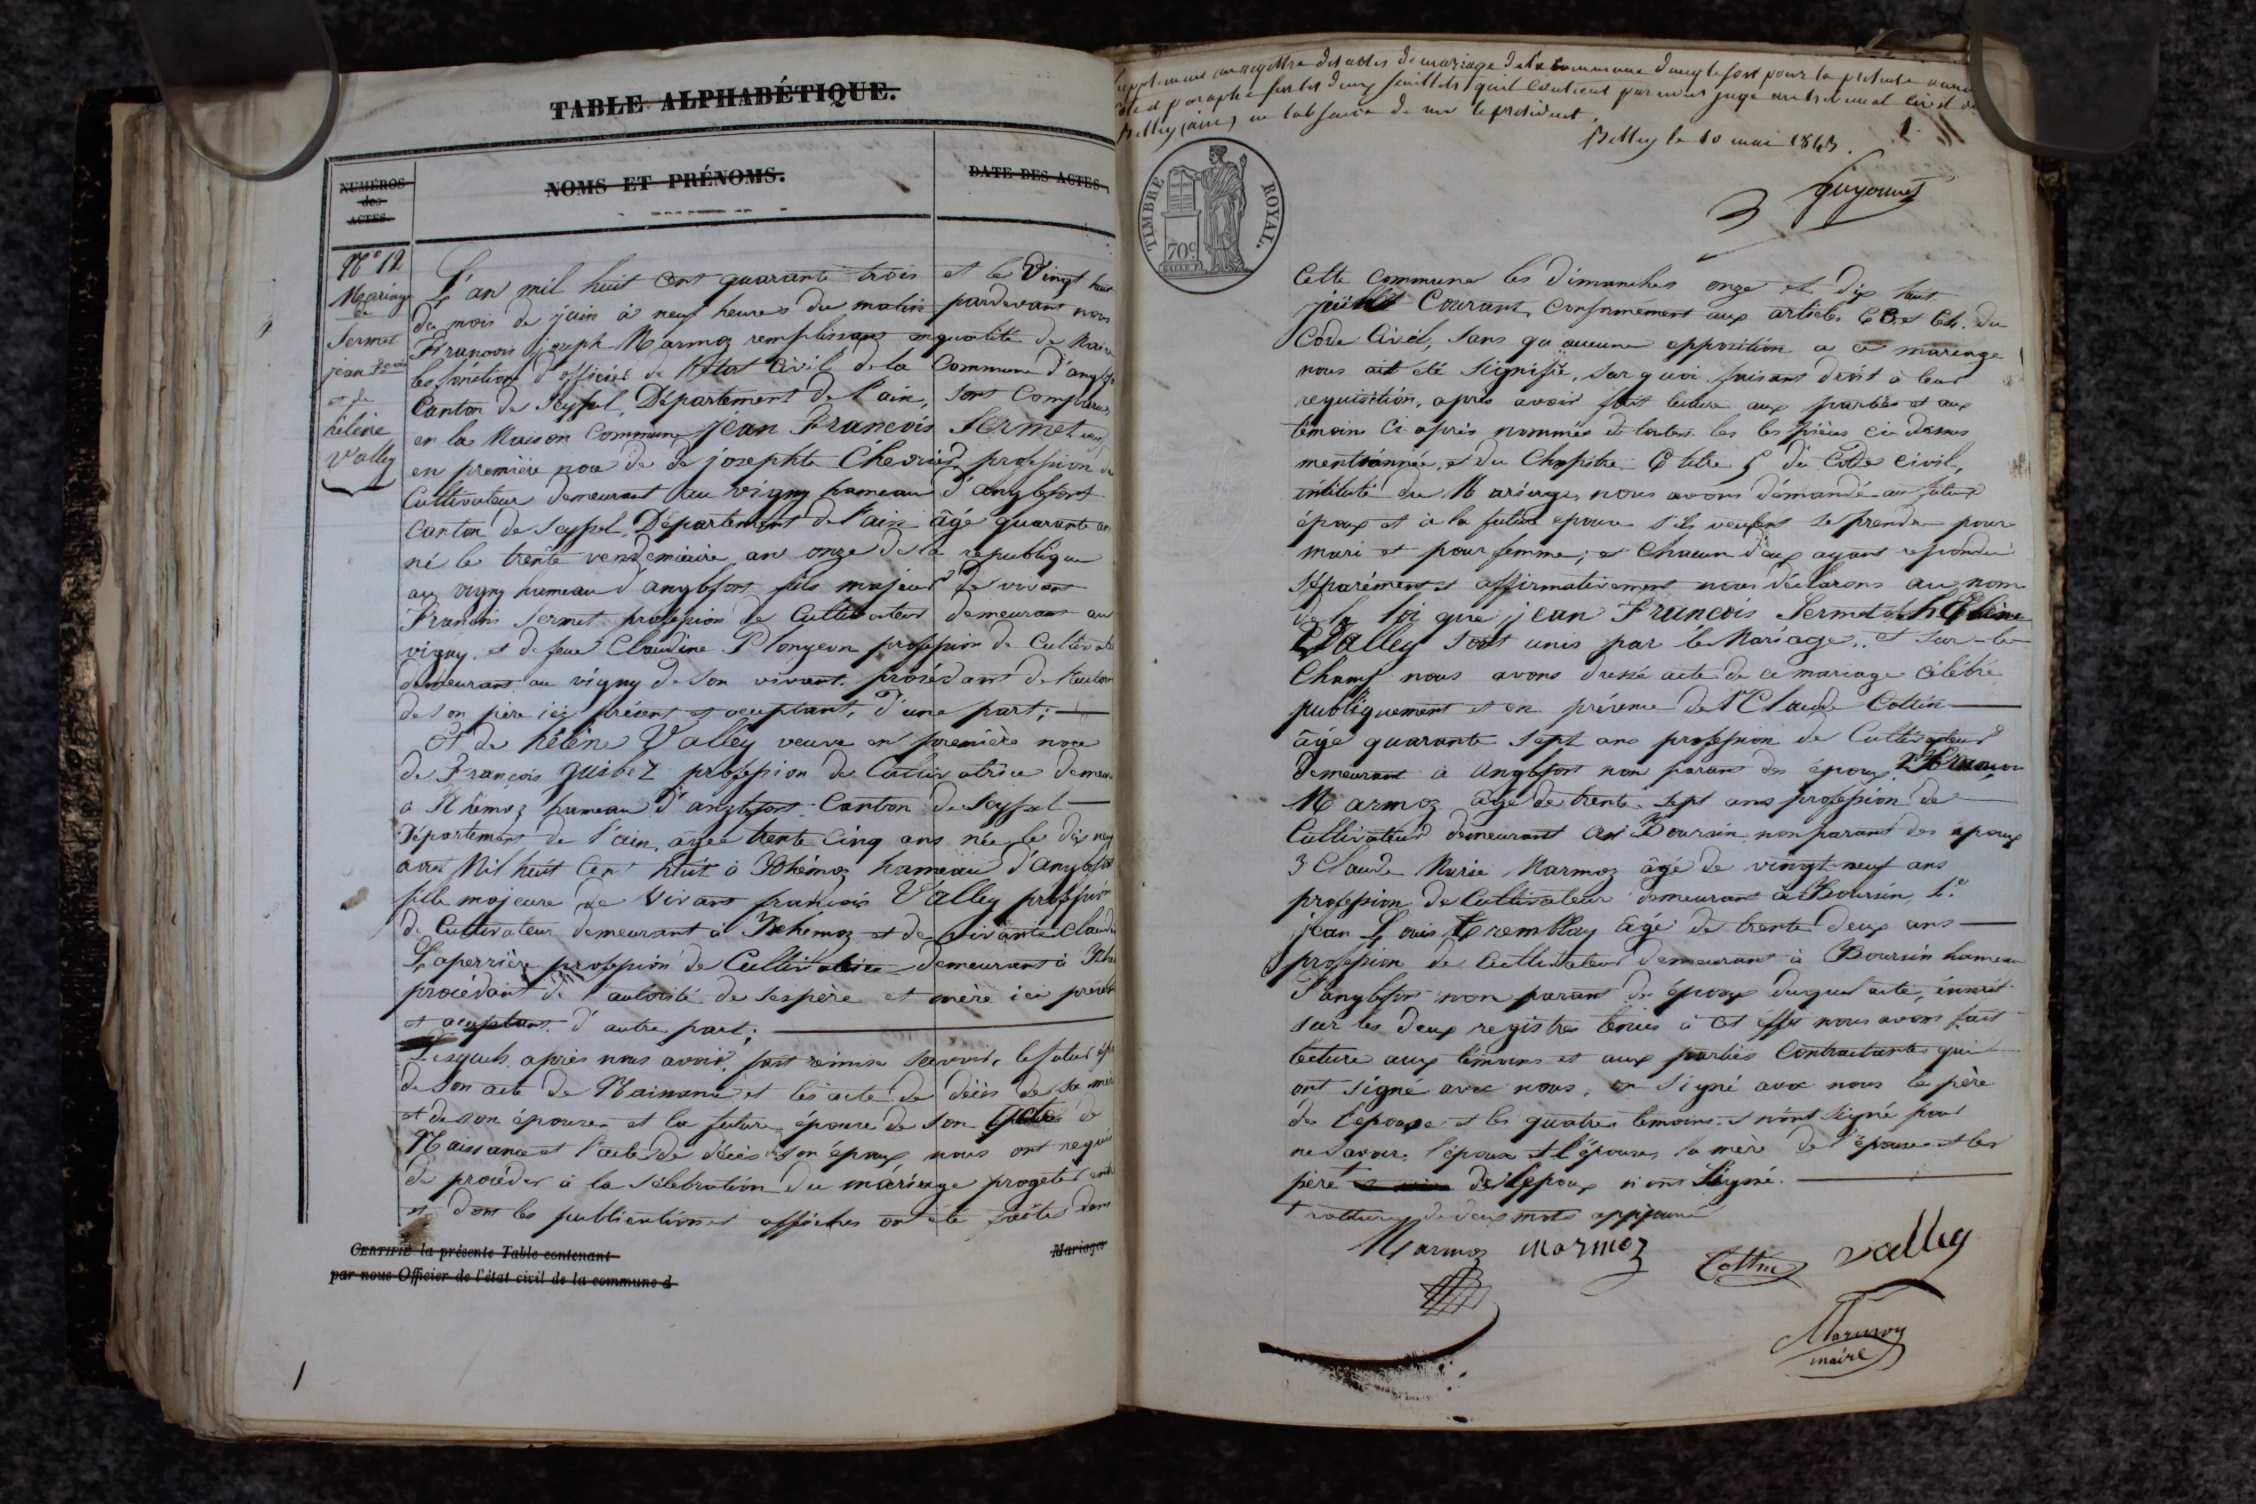 TABLE ALPHABÉTIQUE.
NUMÉROS
des
ACTES.
NOMS ET PRÉNOMS.
DATE DES ACTES.
N° 12
Mariage
de
Sermet
jean
et de
hélène
Valley
L'an mil huit cent quarante trois et le Vingt huit
du mois de juin à neuf heures du matin pardevant nous
François joseph Marmoz remplissant en qualité de Maire
les fonctions d'officier de l'état Civil de la Commune d'anglefort
Canton de Seyssel, Département de l'ain, sont Comparus
en la Maison Commune jean François Sermet
en première noce de de josephte Chevrier, profession de
Cultivateur demeurant au vigny hameau d'anglefort
Canton de Seyssel, Département de l'ain âgé quarante ans
né le trente vendemiaire an onze de la republique
au vigny hameau d'anglefort fils majeur de vivant
François Sermet profession de Cultivateur demeurant au
vigny et de feue Claudine Plongeon profession de Cultivatrice
demeurant au vigny de son vivant. prosédant de
de son père ici présent et acceptant, d'une part;
Et de hélène Valley veuve en première noce
de François profession de Cultivatrice demeurant
à Rhémoz hameau d'anglefort Canton de Seyssel
Département de l'ain, âgée trente Cinq ans née le dix neuf
Mil huit Cent huit à Rhémoz hameau d'anglefort
fille majeure de Vivant françois Valley profession
de Cultivateur demeurant à Rhémoz et de vivante Claudine
Laperrière profession de Cultivatrice demeurant à
procédant de l'autorité de ses père et mère ici présent
et acceptant d'autre part;
Lesquels après nous avoir fait remise savoir, le futur époux
de son acte de Naissance et les acte de décès de sa mère
et de son épouse et la future épouse de son acte de
Naissance et l'acte de décès son époux nous ont requis
de procéder à la célébration du mariage progeté entre
et dont les publications et affiches ont été faites dans
CERTIFIÉ la présente Table contenant
Mariages
par nous Officier de l'état civil de la commune d
1
registre des actes de mariage de la commune d'anglefort pour la présente année
coté et paraphé sur les deux feuillets qu'il contient par nous juge au tribunal civil de
Belley (ain) en l'absence de mr le président.
Belley le 10 mai 1843.
1.
guyonnet
TIMBRE ROYAL.
70c.
Cette commune les dimanches onze et dix huit
Courant, Conformément aux articles 63 et 64. du
Code Civil, sans qu'aucune opposition a ce mariage
nous ait été signifié, sur quoi faisant droit à leur
requisition, après avoir fait lecture aux parties et aux
témoins Ci après nommés de toutes les les pièces ci dessus
mentionnée, et du Chapitre 6 titre 5 du Code Civil,
intitulé du Mariage, nous avons demandé au futur
époux et à la future epouse s'ils veulent se prendre pour
mari et pour femme; et Chacun d'eux ayant répondu
séparément et affirmativement nous déclarons au nom
de la loi que jean François Sermet et hélène
Valley sont unis par le Mariage. et sur le
Champ nous avons dressé acte de ce mariage célébré
publiquement et en présence de 1° Claude Cottin
âgé quarante sept ans profession de Cultivateur
demeurant à anglefort non parant des époux 2° François
Marmoz âgé de trente sept ans profession de
Cultivateur demeurant au Boursin non parant des époux
3 Claude Marie Marmoz âgé de vingt neuf ans
profession de Cultivateur demeurant à Boursin, 4°
jean Louis Tremblay âgé de trente deux ans
profession de Cultivateur demeurant à Boursin hameau
d'anglefort non parant des époux duquel acte, inscrit
sur les deux registres tenus à cet effet nous avons fait
lecture aux témoins et aux parties Contractantes qui
ont signé avec nous, on signé avec nous le père
de l'épouse et les quatres temoins. et n'ont signé pour
ne savoir, l'époux et l'épouse, la mère de l'épouse et les
père de l'époux n'ont signé.
rature de deux mots approuvé
Marmoz marmoz Cottin valley
Marmoz
maire